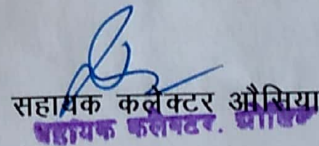 सहायक कलेक्टर औसिया
सहायक कलेक्टर.